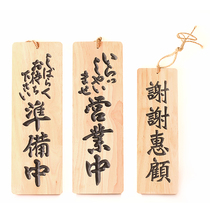 しばらく
お待ちください
準備中
いらっ
しゃいませ
営業中
謝謝惠顧